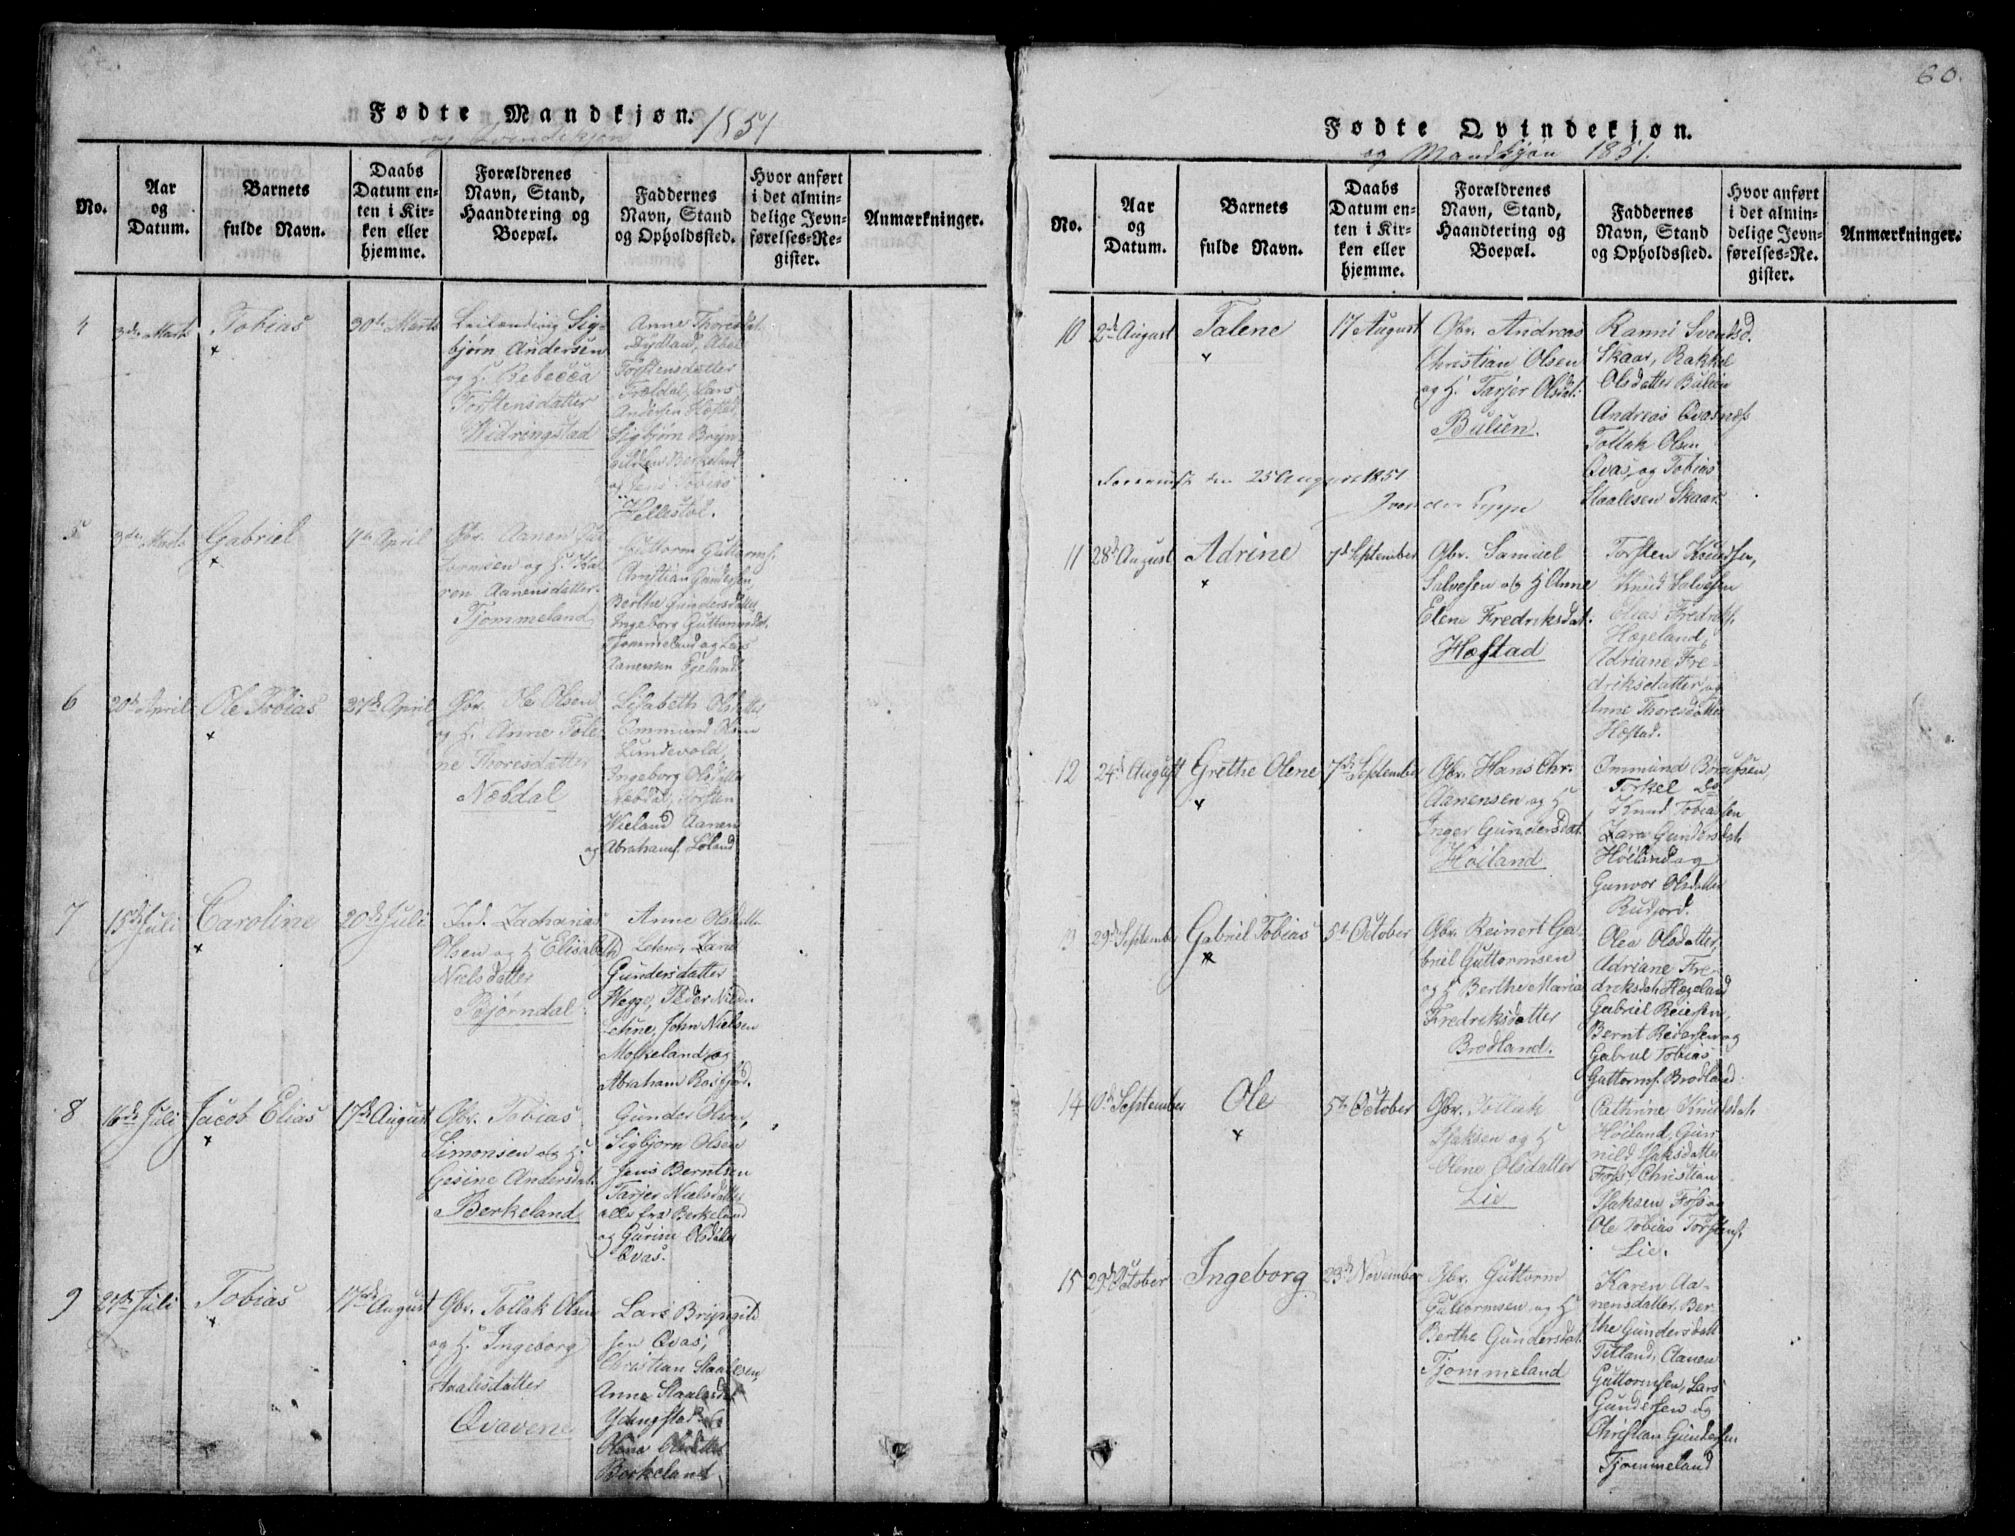 Fødte Mandkjøn. 1851
og Qvindekjøn
No.
Aar
og
Datum.
Barnets
fulde Navn.
Daabs
Datum en-
ten i Kir-
ken eller
hjemme.
Forældrenes
Navn, Stand,
Haandtering og
Boepæl.
Faddernes
Navn, Stand
og Opholdssted.
Hvor anført
i det almin-
delige Jevn-
førelses-Re-
gister.
Anmærkninger.
4
3de Marts
Tobias
×
30te Marts
Leilænding Sig-
bjørn Andersen
og H. Rebecca
Torstensdatter
Widringstad
Anne Thoresdat.
Dydland, Abel
Torstensdatter
Trældal, Lars
Andersen Hæstad
Sigbjørn Bryn-
ildsen Berkeland
og Jens Tobias
Hellestøl.
5
3de Marts
Gabriel
×
April
Gbr. Aanen Gut-
tormsen og H. Ka-
ren Aanensdatter.
Tjommeland
Guttorm Guttormsen
Christian Gundersen
Berthe Gundersdatter
Ingeborg Guttormsdat.
Tjommeland og Lars
Aanensen Egeland
6
20de April
Ole Tobias
×
27de April
Gbr. Ole Olsen
og H. Anne Tole-
ne Thoresdatter
Næbdal
Lisabeth Olsdatter
Ommund Olsen
Lundevold,
Ingeborg Olsdatter
Næbdal, Torsten
Wieland Aanen
og Abrahams. Loland
7
15de Juli
Caroline
×
20de Juli
Ind. Zacharias
Olsen og H Elisabeth
Nielsdatter
Bjørndal
Anne Olsdatter
Lehne, Zara
Gundersdatter
Hegge, Peder Nielsen
Lehne, John Nielsen
Moskeland, og
Abraham Rosfjord.
8
16de Juli
Jacob Elias
×
17de August
Gbr. Tobias
Simonsen og H.
Gesine Andersdat.
Berkeland
Gunder Olsen,
Sigbjørn Olsen
Jens Berntsen
Tarjer Nielsdatter
alle fra Berkeland
og Gurine Olsdatter
Qvas.
9
27de Juli
Tobias
×
17de August
Gbr. Tollak Olsen
og H. Ingeborg
Staalesdatter
Qvavene
Lars Bryngild
sen Qvas,
Christian Staalesen,
Anne Staalesdat
Ydingstad
Olene Olsdatter
Berkeland
60.
Fødte Qvindekjøn.
og Mandkjøn 1851.
No.
Aar
og
Datum.
Barnets
fulde Navn.
Daabs
Datum en-
ten i Kir-
ken eller
hjemme.
Forældrenes
Navn, Stand,
Haandtering og
Boepæl.
Faddernes
Navn, Stand
og Opholdssted.
Hvor anført
i det almin-
delige Jevn-
førelses-Re-
gister.
Anmærkninger.
10
2de August
Talene
×
17 August
Gbr. Andreas
Christian Olsen
og H. Tarjer Olsdat:
Bulien.
Ranni Svendsd.
Skaar, Rakkel
Olsdatter Bulien
Andreas Qvasnæss
Tollak Olsen
Qvas, og Tobias
Staalesen Skaar
den 25 August 1851
11
28de August
Adrine
×
7de September
Gbr. Samuel
Salvesen og H Anne
Elene Fredriksdat.
Hæstad
Torsten Knudsen,
Knud Salvesen
Elias Fredriks.
Hægeland,
Adriane Fre-
driksdatter, og
Anne Thoresdatter
Hæstad.
12
24de August
Grethe Olene
×
7de September
Gbr. Hans Chr.
Aanensen og H
Inger Gundersdat.
Høiland
Ommund Borufsen,
Torkel do
Knud Tobiassen
Zara Gundersdat.
Høiland og
Gunvor Olsdatter
Rudjord.
3
29de September
Gabriel Tobias
×
5te October
Gbr. Reinert Ga-
briel Guttormsen
og H Berthe Maria
Fredriksdatter
Brødland.
Olea Olsdatter,
Adriane Fre-
driksdat. Hægeland
Gabriel Reiersen,
Bernt Reiersen og
Gabriel Tobias
Guttorms. Brødland:
14
10de September
Ole
×
5te October
Gbr. Tollak
Isaksen og H
Olene Olsdatter
Lie
Cathrine Knudsdat.
Høiland, Gun
nild Isaksdatter
Foss, Christian
Isaksen Foss og
Ole Tobias Torstens.
Lie.
15
29de October
Ingeborg
23de November
Gbr. Guttorm
Guttormsen og H
Berthe Gundersdat.
Tjommeland
Karen Aa-
nensdatter, Ber-
the Gundersdatt
Titland, Aanen
Guttormsen, Lars
Gundersen og
Christian Gundersen
Tjommeland